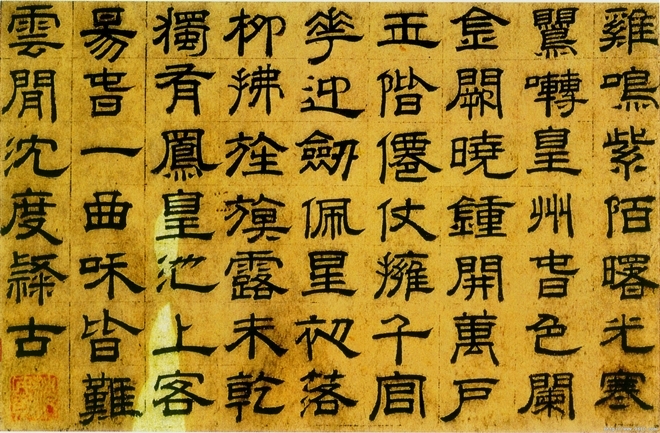 雞鳴紫陌曙光寒
鸎囀皇州旹色闌
金闕曉鍾開萬戶
玉階僊仗擁千官
華迎劒佩星初落
柳拂旌旗露未乾
獨有鳳皇池上客
昜旹一曲咊皆難
雲閒沈度隸古